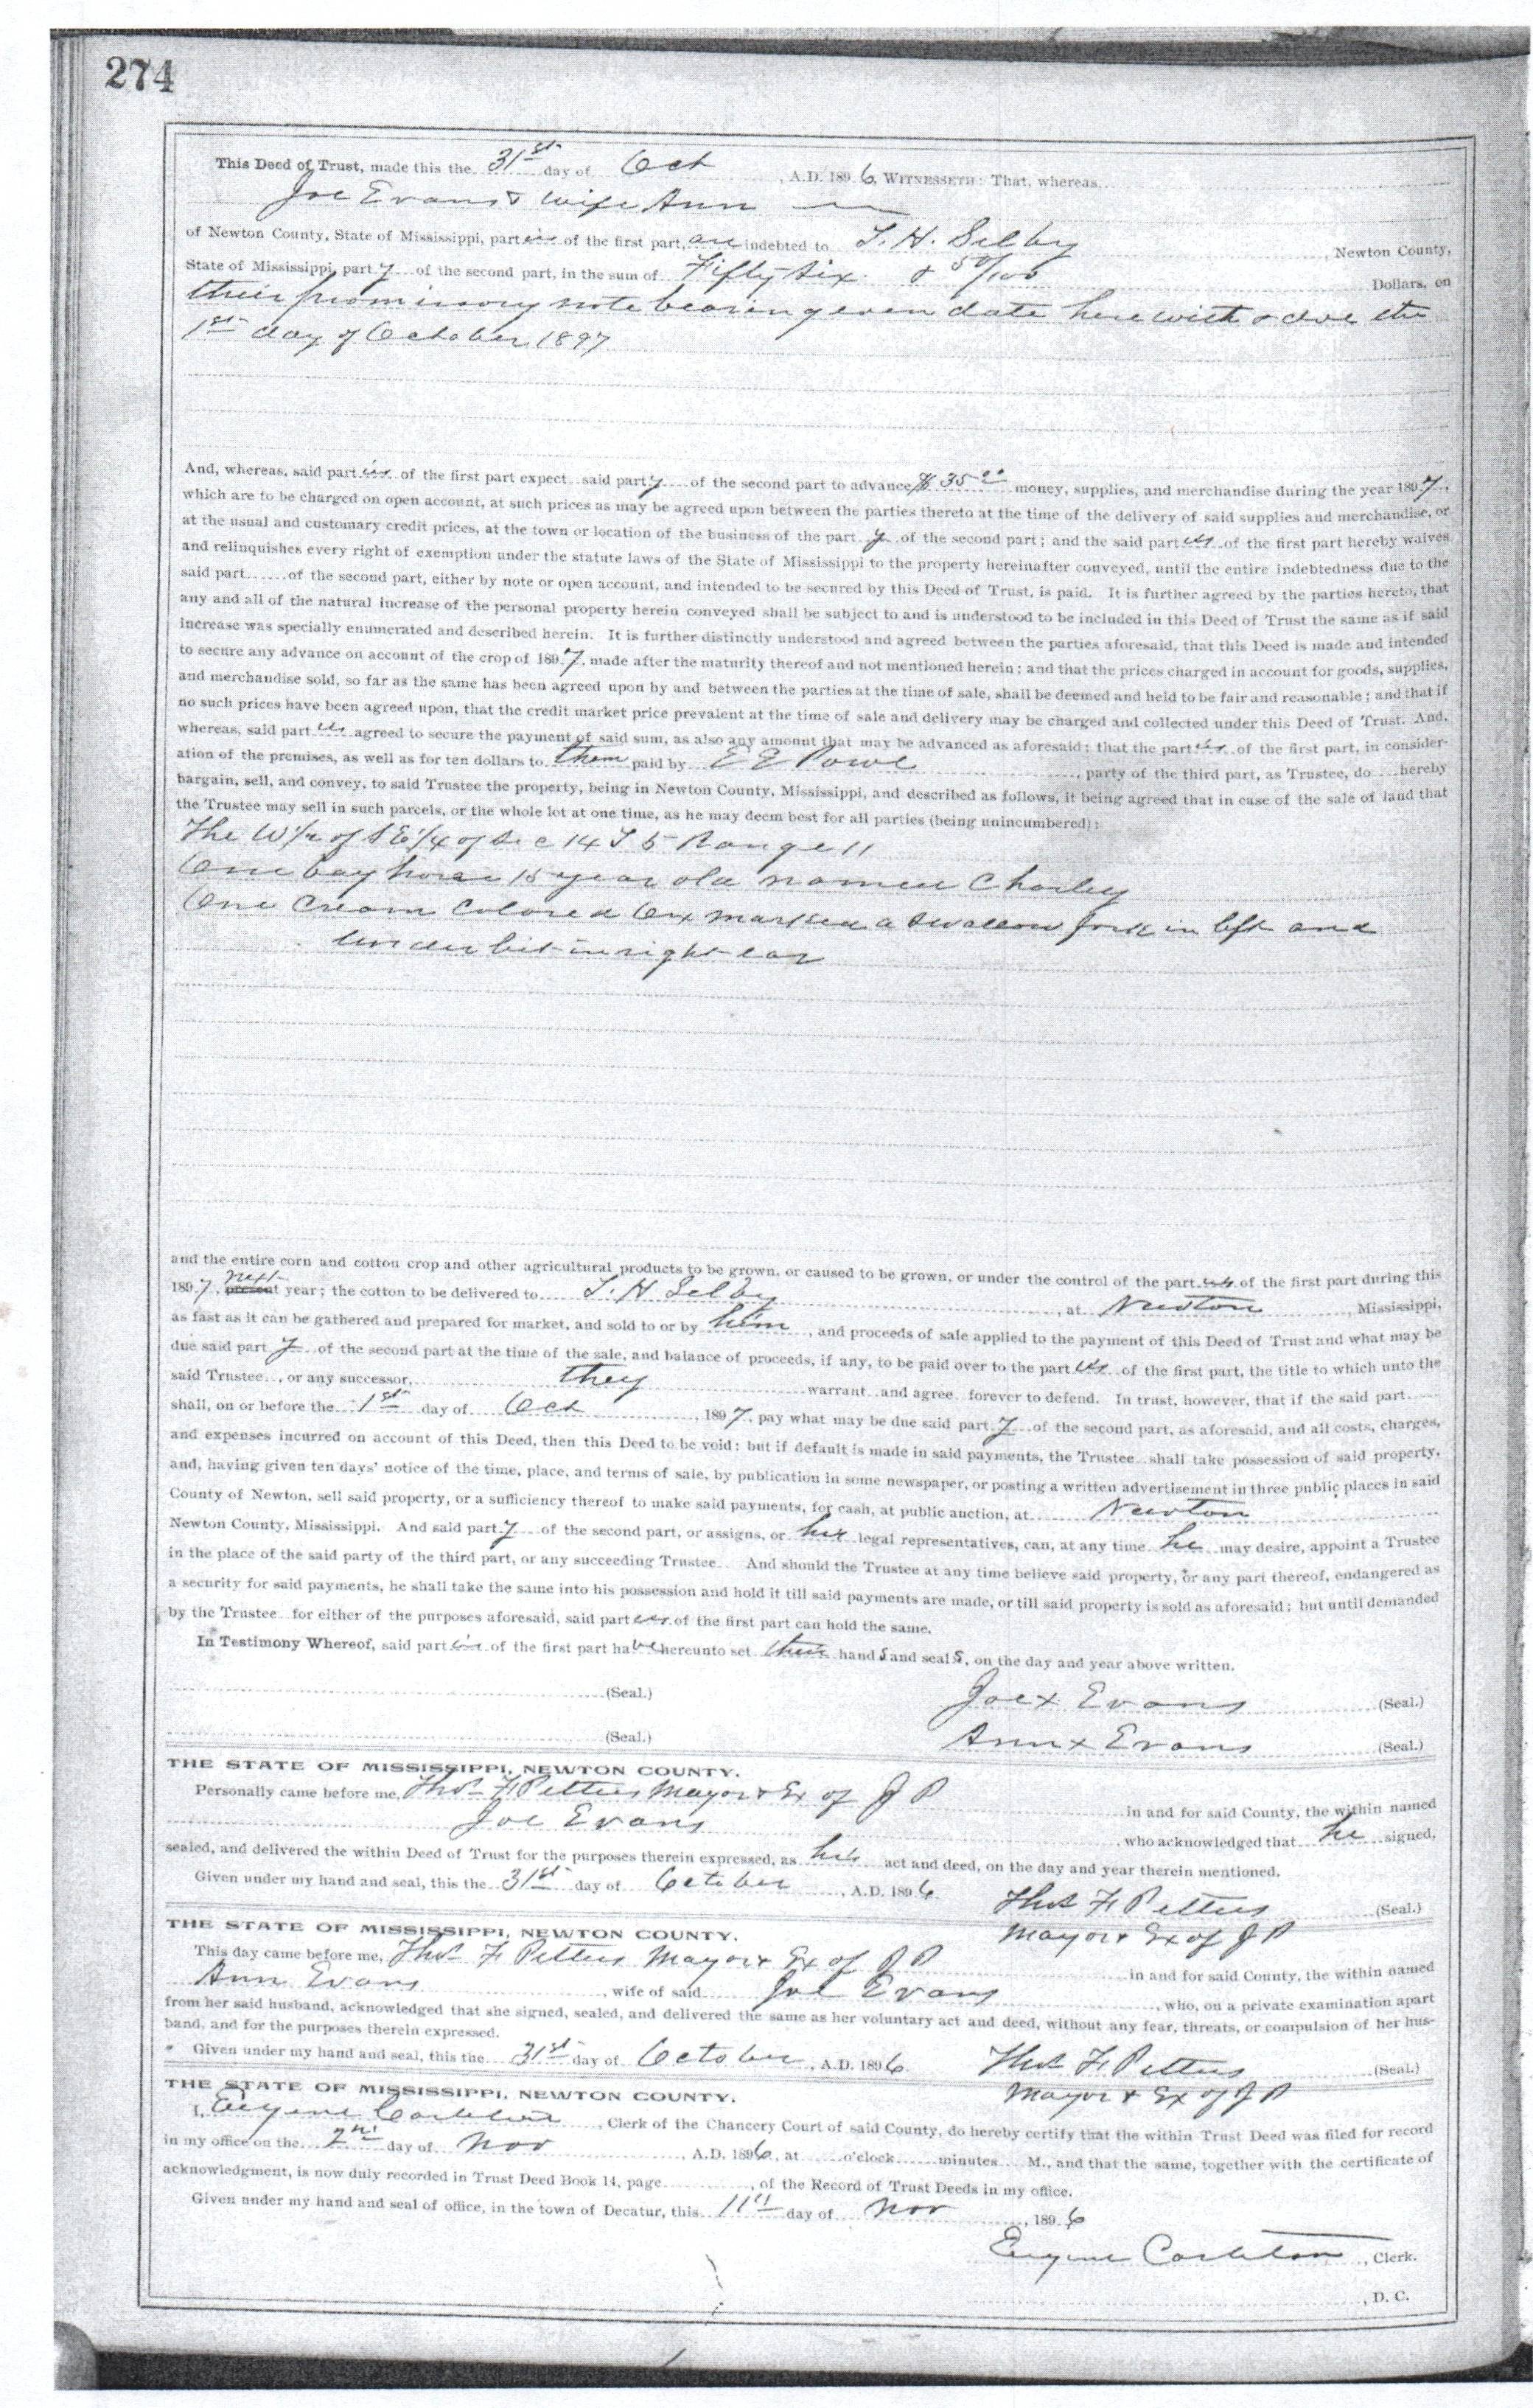 274
This Deed of Trust, made this the 31st day of Oct , A.D. 1896, WITNESSETH: That, whereas
Joe Evans & wife Ann
of Newton County, State of Mississippi, parties of the first part, are indebted to T. H. Selby , Newton County,
State of Mississippi, party of the second part, in the sum of Fifty Six & 50/100 Dollars, on
their promissory note bearing even date herewith & due the
1st day of October 1897
And, whereas, said parties of the first part expect said party of the second part to advance $ 35 00 money, supplies, and merchandise during the year 1897,
which are to be charged on open account, at such prices as may be agreed upon between the parties thereto at the time of the delivery of said supplies and merchandise, or
at the usual and customary credit prices, at the town or location of the business of the party of the second part; and the said parties of the first part hereby waives
and relinquishes every right of exemption under the statute laws of the State of Mississippi to the property hereinafter conveyed, until the entire indebtedness due to the
said part of the second part, either by note or open account, and intended to be secured by this Deed of Trust, is paid. It is further agreed by the parties hereto, that
any and all of the natural increase of the personal property herein conveyed shall be subject to and is understood to be included in this Deed of Trust the same as if said
increase was specially enumerated and described herein. It is further distinctly understood and agreed between the parties aforesaid, that this Deed is made and intended
to secure any advance on account of the crop of 1897, made after the maturity thereof and not mentioned herein; and that the prices charged in account for goods, supplies,
and merchandise sold, so far as the same has been agreed upon by and between the parties at the time of sale, shall be deemed and held to be fair and reasonable; and that if
no such prices have been agreed upon, that the credit market price prevalent at the time of sale and delivery may be charged and collected under this Deed of Trust. And,
whereas, said parties agreed to secure the payment of said sum, as also any amount that may be advanced as aforesaid; that the parties of the first part, in consider-
ation of the premises, as well as for ten dollars to them paid by E E Powe , party of the third part, as Trustee, do hereby
bargain, sell, and convey, to said Trustee the property, being in Newton County, Mississippi, and described as follows, it being agreed that in case of the sale of land that
the Trustee may sell in such parcels, or the whole lot at one time, as he may deem best for all parties (being unincumbered):
The W 1/2 of S E 1/4 of Sec 14 T 5 Range 11
One bay horse 15 year old named Charley
One Cream Colored Ox marked a swallow fork in left and
under bit in right ear
and the entire corn and cotton crop and other agricultural products to be grown, or caused to be grown, or under the control of the parties of the first part during this
1897, next present year; the cotton to be delivered to T. H Selby , at Newton , Mississippi,
as fast as it can be gathered and prepared for market, and sold to or by him , and proceeds of sale applied to the payment of this Deed of Trust and what may be
due said party of the second part at the time of the sale, and balance of proceeds, if any, to be paid over to the parties of the first part, the title to which unto the
said Trustee , or any successor, they warrant and agree forever to defend. In trust, however, that if the said part
shall, on or before the 1st day of Oct , 1897, pay what may be due said party of the second part, as aforesaid, and all costs, charges,
and expenses incurred on account of this Deed, then this Deed to be void; but if default is made in said payments, the Trustee shall take possession of said property,
and, having given ten days' notice of the time, place, and terms of sale, by publication in some newspaper, or posting a written advertisement in three public places in said
County of Newton, sell said property, or a sufficiency thereof to make said payments, for cash, at public auction, at Newton
Newton County, Mississippi. And said party of the second part, or assigns, or his legal representatives, can, at any time he may desire, appoint a Trustee
in the place of the said party of the third part, or any succeeding Trustee. And should the Trustee at any time believe said property, or any part thereof, endangered as
a security for said payments, he shall take the same into his possession and hold it till said payments are made, or till said property is sold as aforesaid; but until demanded
by the Trustee for either of the purposes aforesaid, said parties of the first part can hold the same.
In Testimony Whereof, said parties of the first part have hereunto set their hands and seals, on the day and year above written.
(Seal.) Joe x Evans (Seal.)
(Seal.) Ann x Evans (Seal.)
THE STATE OF MISSISSIPPI, NEWTON COUNTY.
Personally came before me, Thos F. Pettus Mayor & Ex of J P in and for said County, the within named
Joe Evans , who acknowledged that he signed,
sealed, and delivered the within Deed of Trust for the purposes therein expressed, as his act and deed, on the day and year therein mentioned.
Given under my hand and seal, this the 31st day of October , A.D. 1896 Thos F. Pettus (Seal.)
Mayor & Ex of J P
THE STATE OF MISSISSIPPI, NEWTON COUNTY.
This day came before me, Thos F. Pettus Mayor & Ex of J P in and for said County, the within named
Ann Evans , wife of said Joe Evans , who, on a private examination apart
from her said husband, acknowledged that she signed, sealed, and delivered the same as her voluntary act and deed, without any fear, threats, or compulsion of her hus-
band, and for the purposes therein expressed.
Given under my hand and seal, this the 31st day of October , A.D. 1896 Thos F. Pettus (Seal.)
Mayor & Ex of J P
THE STATE OF MISSISSIPPI, NEWTON COUNTY.
I, Eugene Carleton , Clerk of the Chancery Court of said County, do hereby certify that the within Trust Deed was filed for record
in my office on the 2nd day of Nov A.D. 1896, at o'clock minutes M., and that the same, together with the certificate of
acknowledgment, is now duly recorded in Trust Deed Book 14, page , of the Record of Trust Deeds in my office.
Given under my hand and seal of office, in the town of Decatur, this 11th day of Nov , 1896
Eugene Carleton , Clerk.
, D. C.